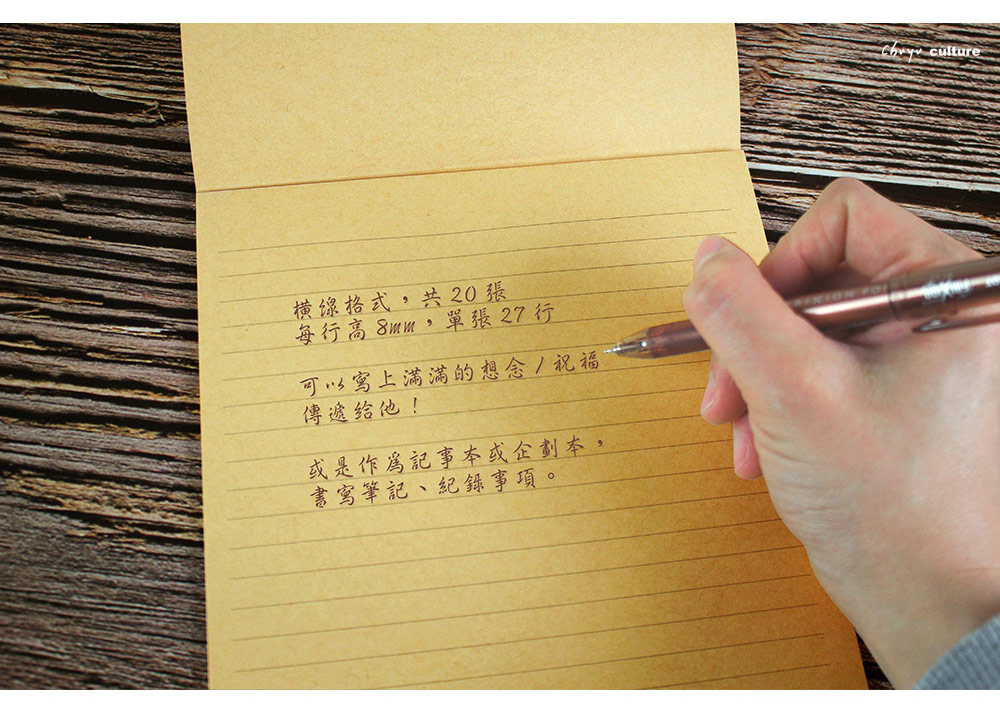 Chuyu culture
橫線格式，共 20 張
每行高 8mm，單張 27 行
可以寫上滿滿的想念 / 祝福
傳遞給他！
或是作為記事本或企劃本，
書寫筆記、紀錄事項。